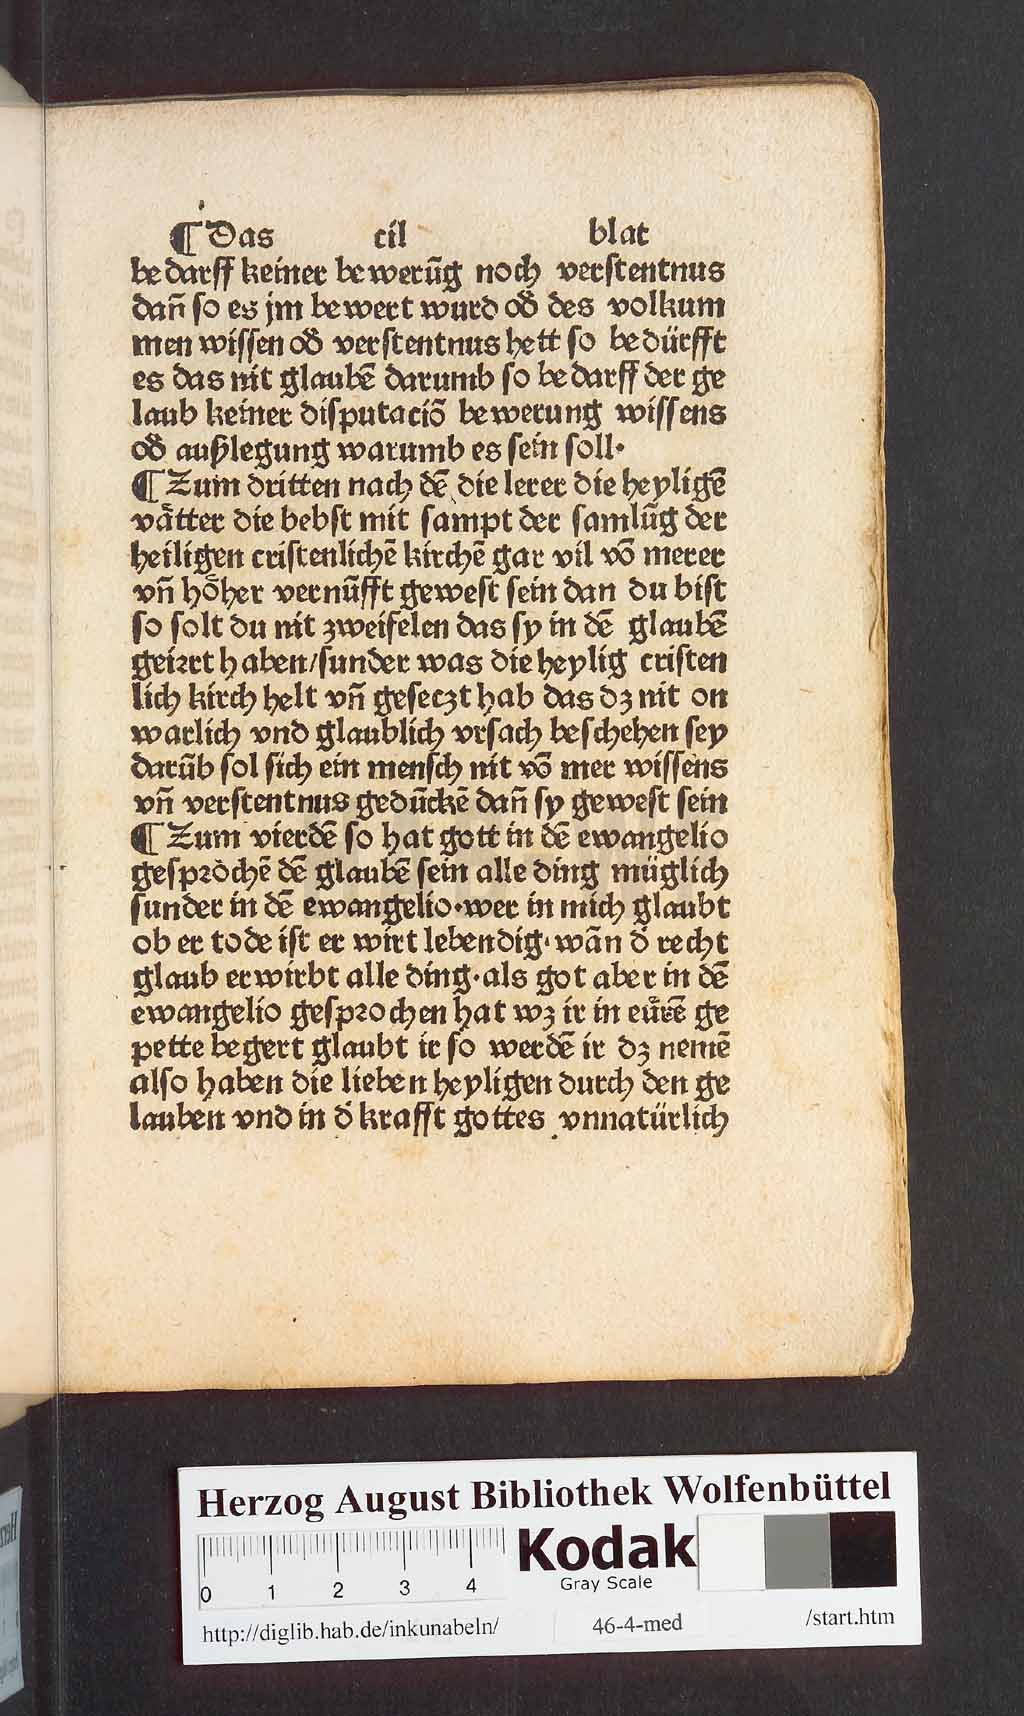 ¶ Das cil blat
bedarff keiner bewerūg noch verstentnus
dañ so es jm bewert wurd ođ des volkum
men wissen ođ verstentnus hett so bedürfft
es das nit glaubē darumb so bedarff der ge
laub keiner disputaciō bewerung wissens
ođ außlegung warumb es sein soll·
¶ Zum dritten nach dē die lerer die heyligē
vaͤtter die bebst mit sampt der samlūg der
heiligen cristenlichē kirchē gar vil vō merer
vñ hoͤher vernūfft gewest sein dan du bist
so solt du nit zweifelen das sy in dē glaubē
geirrt haben/sunder was die heylig cristen
lich kirch helt vñ geseczt hab das dz nit on
warlich vnd glaublich vrsach beschehen sey
darūb sol sich ein mensch nit vō mer wissens
vñ verstentnus gedūckē dañ sy gewest sein
¶ Zum vierdē so hat gott in dē ewangelio
gesprochē dē glaubē sein alle ding müglich
sunder in dē ewangelio·wer in mich glaubt
ob er tode ist er wirt lebendig·wān đ recht
glaub erwirbt alle ding·als got aber in dē
ewangelio gesprochen hat wz ir in eūrē ge
pette begert glaubt ir so werdē ir dz nemē
also haben die lieben heyligen durch den ge
lauben vnd in đ krafft gottes vnnatürlich
Herzog August Bibliothek Wolfenbüttel
0 1 2 3 4
Kodak
Gray Scale
http://diglib.hab.de/inkunabeln/ 46-4-med /start.htm